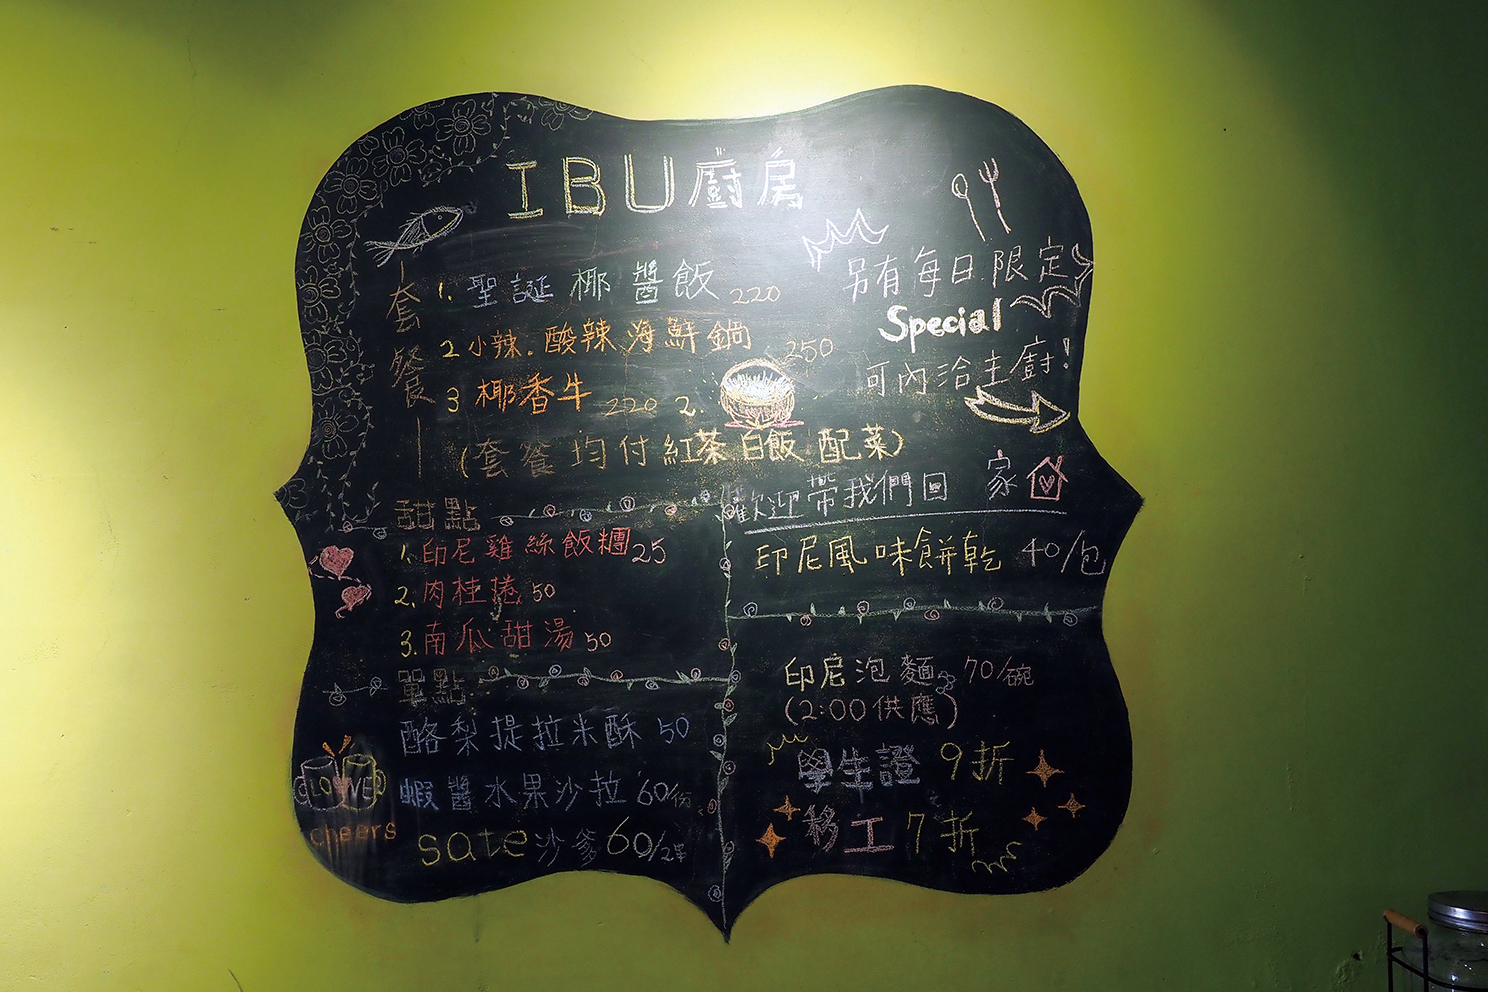 IBU廚房
套餐
1. 聖誕椰醬飯 220
2 小辣.酸辣海鮮鍋 250
3 椰香牛 220 2.
(套餐均付紅茶白飯配菜)
另有每日限定
Special
可內洽主廚!
甜點
1. 印尼雞絲飯糰 25
2. 肉桂捲 50
3. 南瓜甜湯 50
單點
酪梨提拉米酥 50
蝦醬水果沙拉 60/份
sate沙爹 60/2串
LOVE
cheers
歡迎帶我們回家
印尼風味餅乾 40/包
印尼泡麵 70/碗
(2:00供應)
學生證 9折
移工 7折